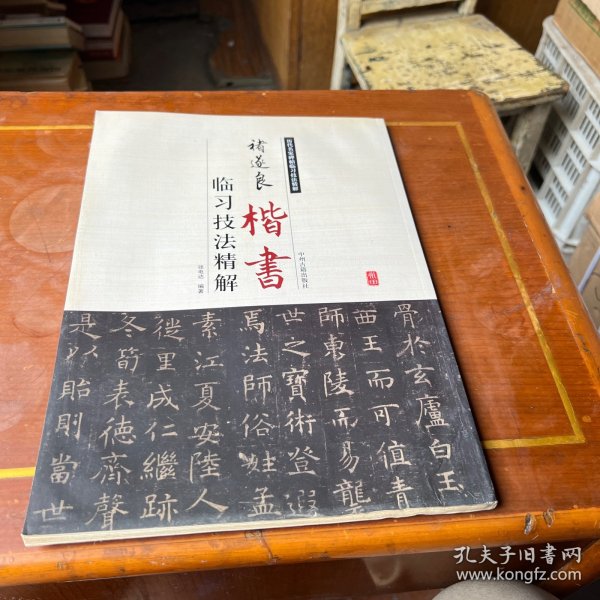 历代名家碑帖临习技法精解
褚遂良
楷書
临习技法精解
编著
中州古籍出版社
骨於玄廬白玉
西王而可值青
師東陵而易龔
世之寶術登遐
焉法師俗姓孟
素江夏安陸人
徙里成仁繼跡
冬筍表德齊聲
是以貽則當世
孔夫子旧书网
www.kongfz.com